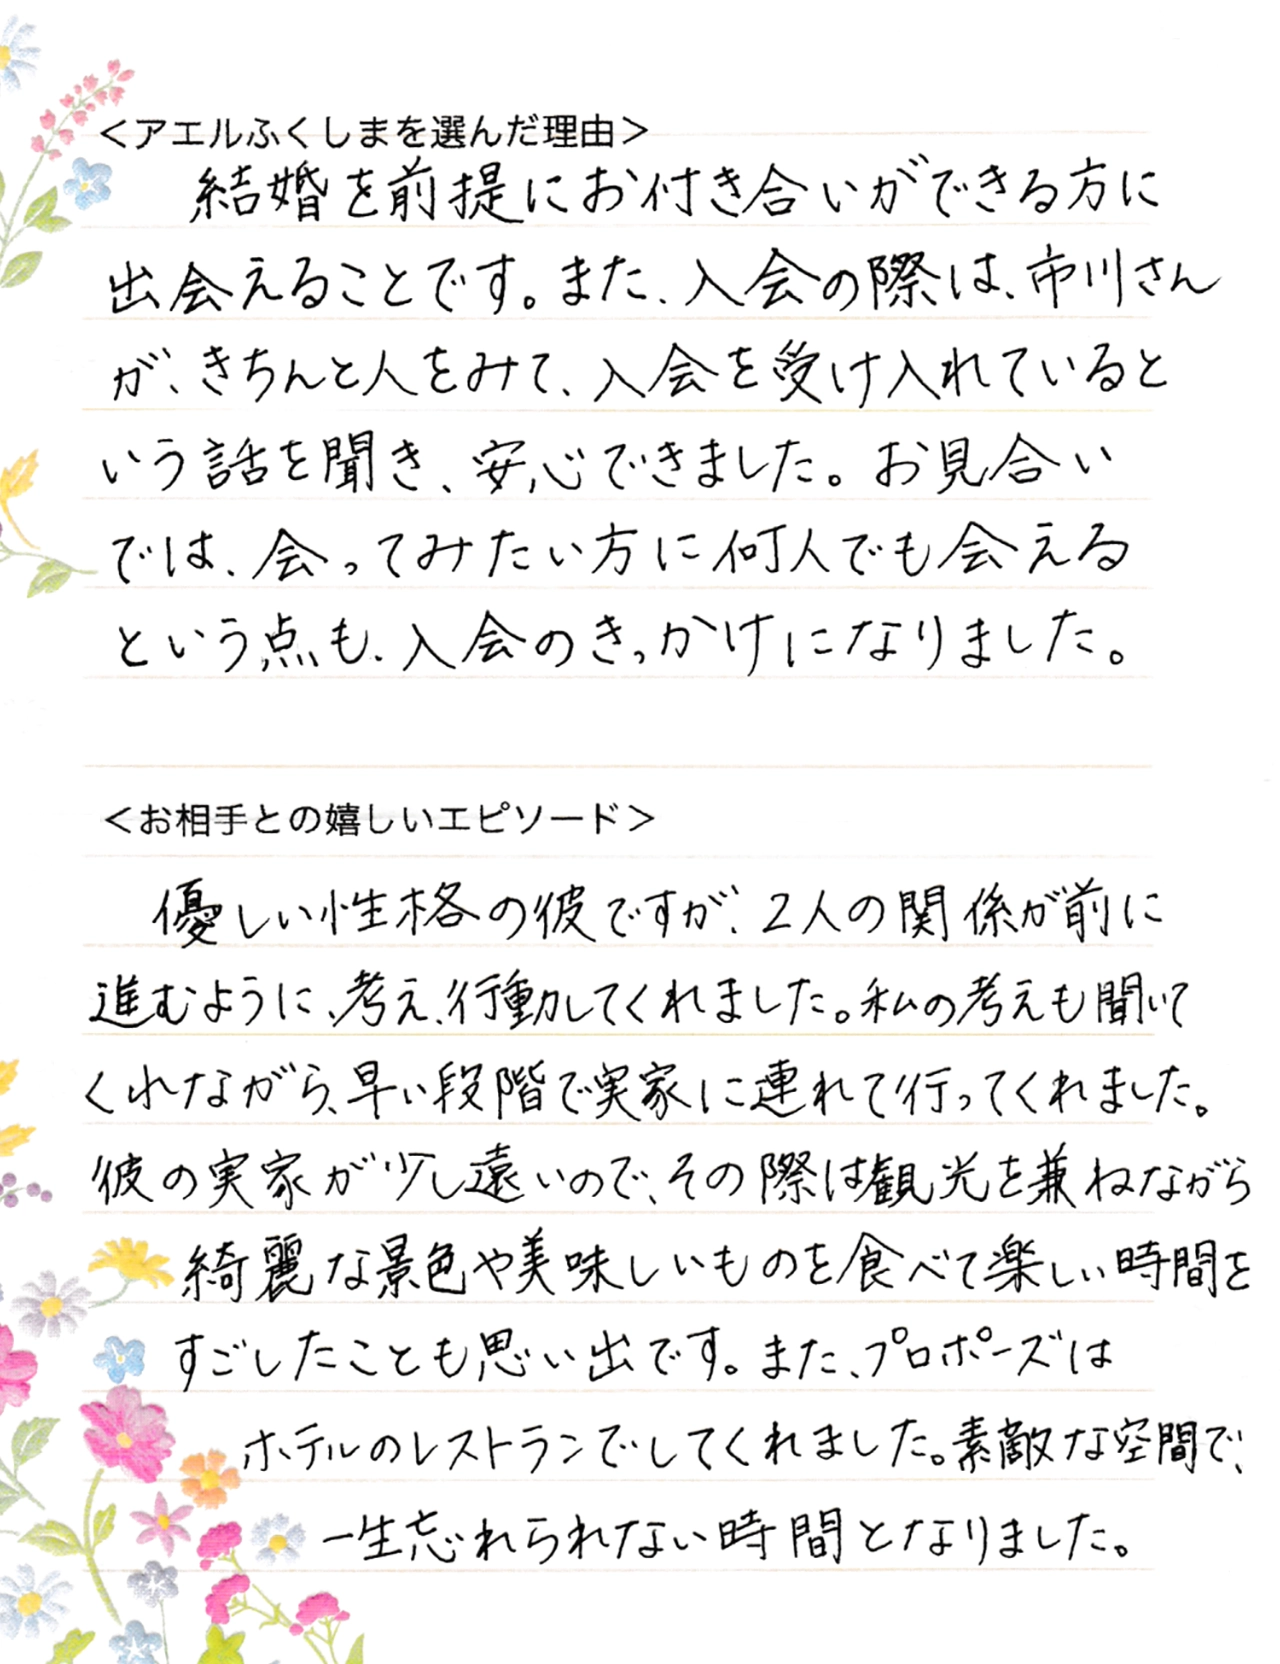 ＜アエルふくしまを選んだ理由＞
結婚を前提にお付き合いができる方に
出会えることです。また、入会の際は、市川さん
が、きちんと人をみて、入会を受け入れていると
いう話を聞き、安心できました。お見合い
では、会ってみたい方に何人でも会える
という点も、入会のきっかけになりました。
＜お相手との嬉しいエピソード＞
優しい性格の彼ですが、2人の関係が前に
進むように、考え、行動してくれました。私の考えも聞いて
くれながら、早い段階で実家に連れて行ってくれました。
彼の実家が少し遠いので、その際は観光を兼ねながら
綺麗な景色や美味しいものを食べて楽しい時間を
すごしたことも思い出です。また、プロポーズは
ホテルのレストランでしてくれました。素敵な空間で、
一生忘れられない時間となりました。